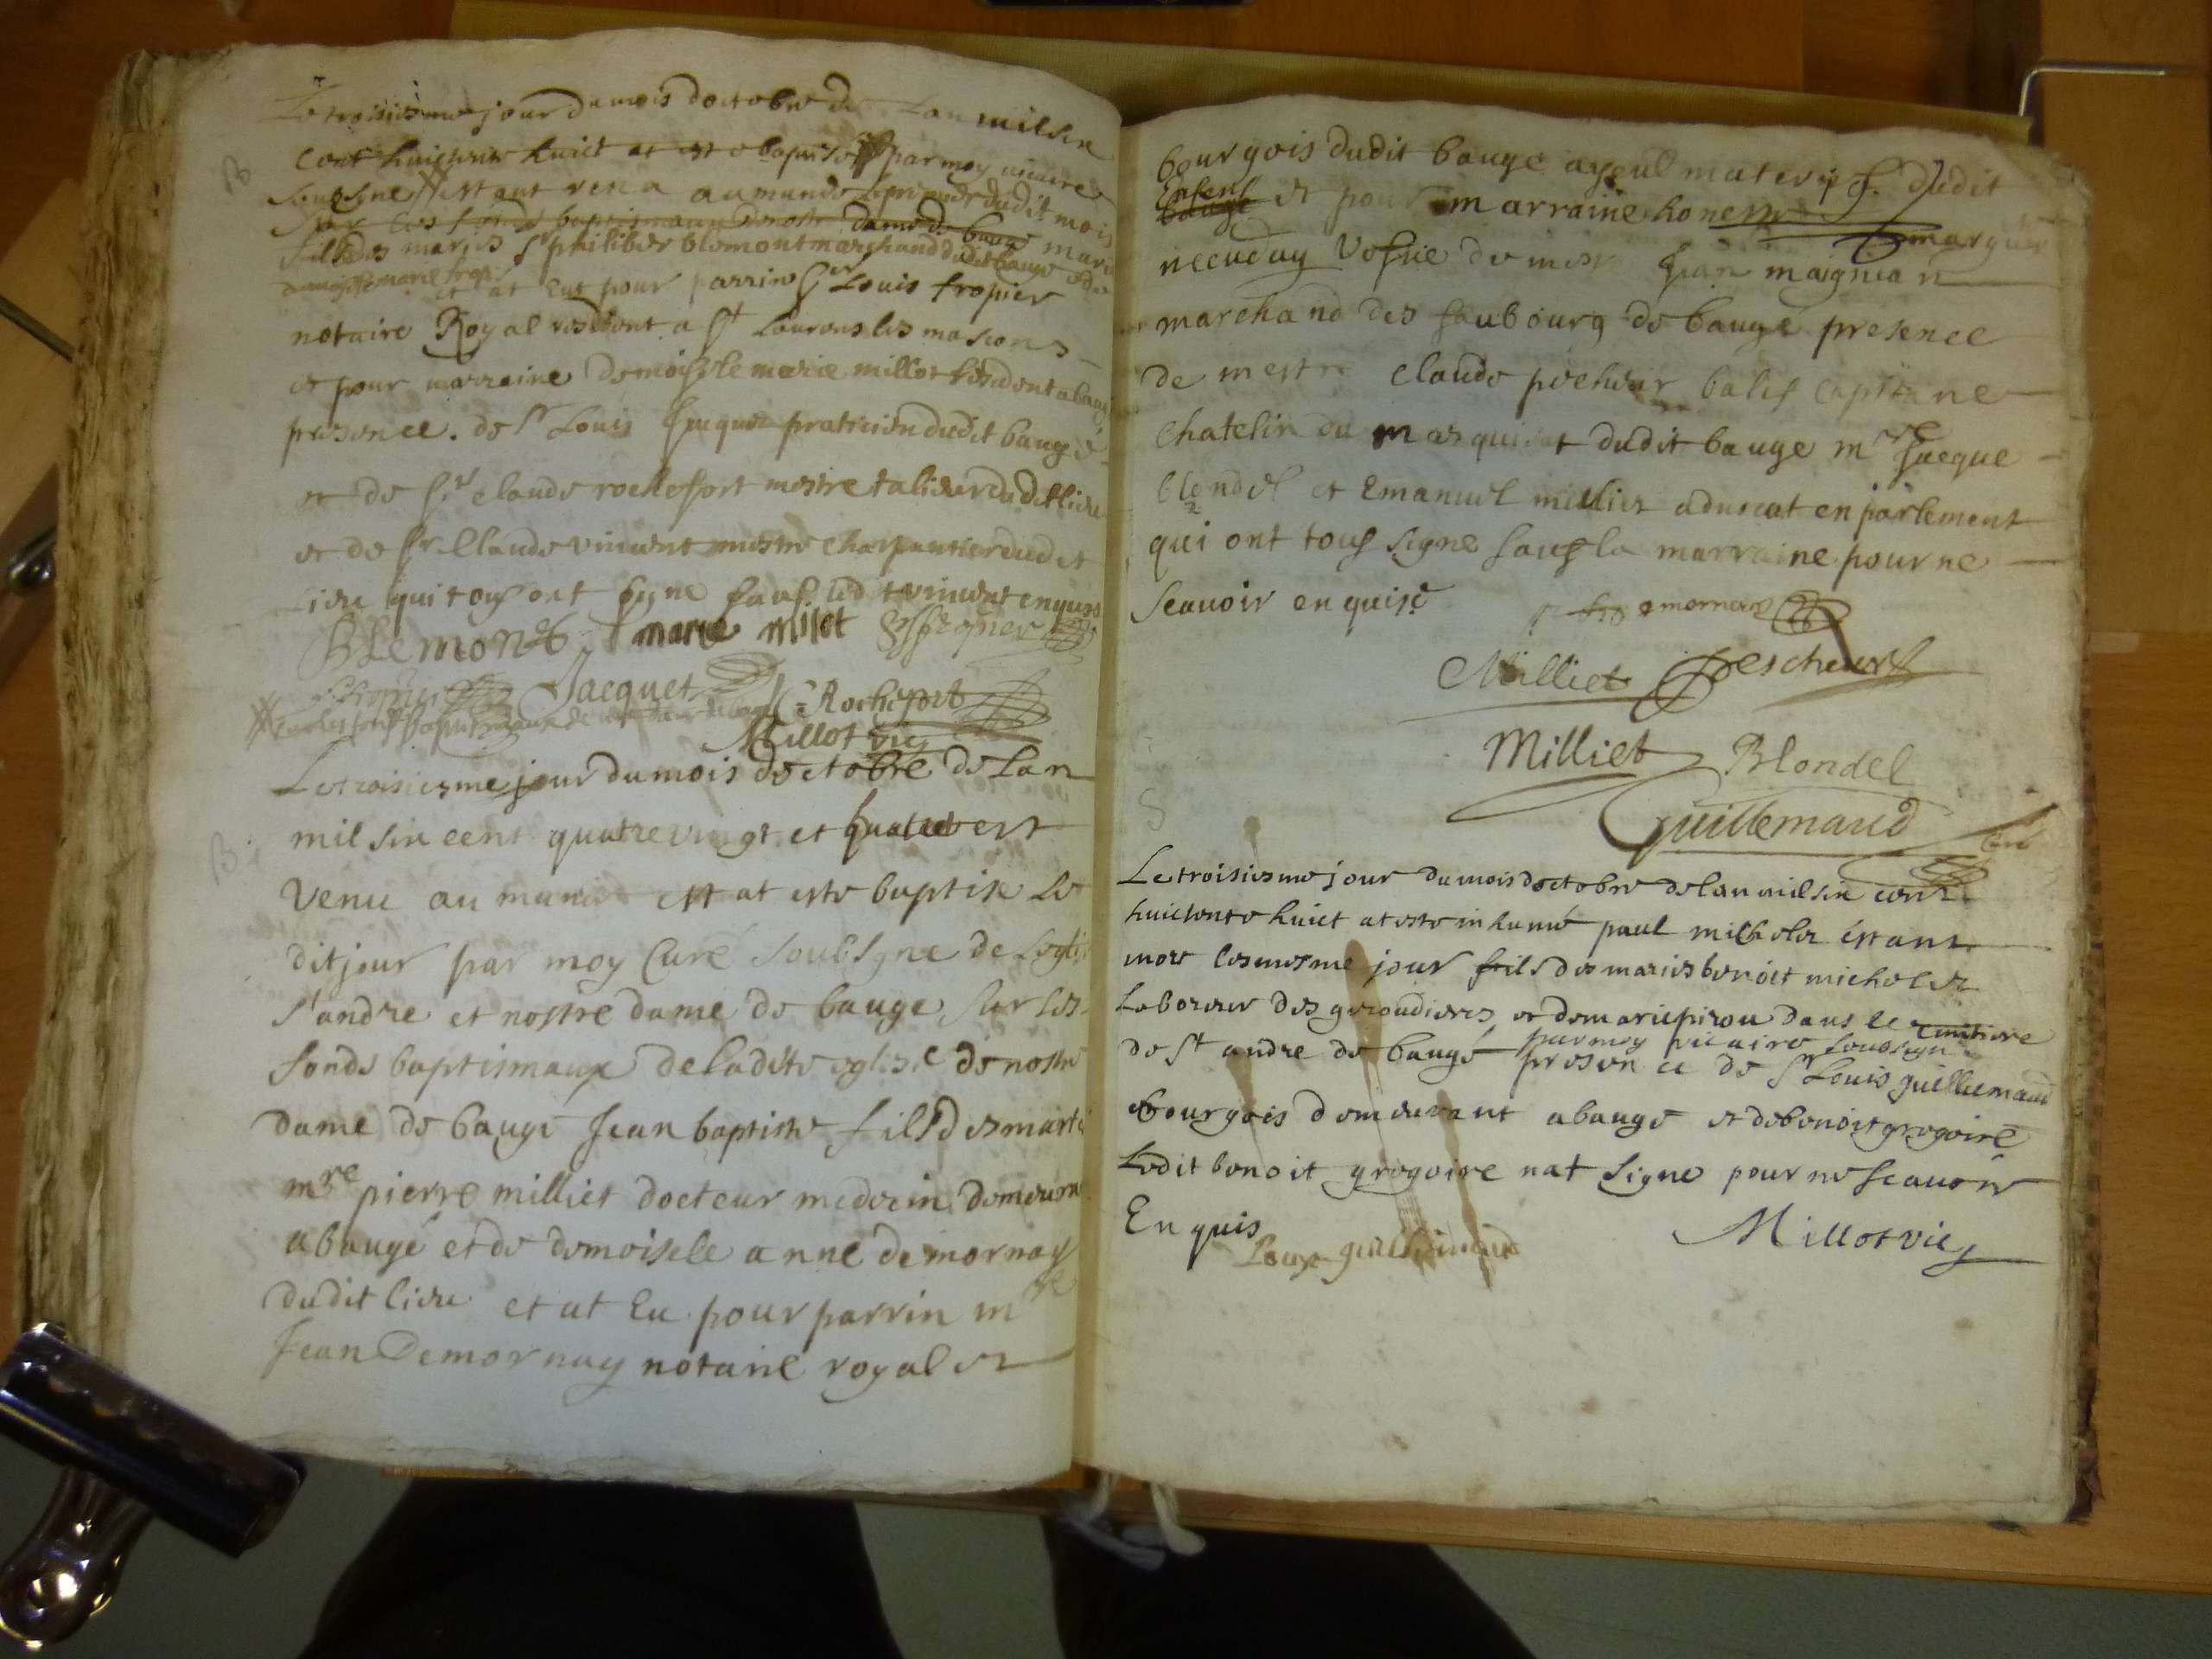 B
Le troisiesme jour du mois doctobre de Lan mil six
cent huictente huict at este baptisé par moy vicaire
soubsigne estant venu au monde le premier dudit mois
sur les fonds baptismaux de nostre dame de baugé marie
fille des mariés Sr philiber blemont marchand dudit baugé et de
damoiselle marie fropier
et at Eut pour parrin Sr Louis fropier
notaire Royal residont a St Laurens les mascons
et pour marraine demoiselle marie millot residont a baugé
presence. de Sr Louis Jacquet praticien dudit baugé
et de Sr claude rochefort mestre talieur dudit lieu
et de Sr Claude vincent mestre charpantier dudit
Lieu qui tous ont signe sauf ledit vincent enquis
BLemont marie milot fropier
fropier Jacquet C Rochefort
sur les fonds baptismaux de nostre dame de baugé
Millot vic
B
Le troisiesme jour du mois doctobre de Lan
mil six cent quatre vingt et huict est
venu au munde et at este baptise Le
dit jour par moy Curé Soubsigne de Leglise
St andre et nostre dame de bauge sur les
fonds baptismaux de ladite eglise de nostre
dame de baugé Jean baptiste fils des mariés
mre pierre milliet docteur medecin demeurant
a baugé et de demoiselle anne demornay
dudit lieu et at Eu pour parrin mre
Jean Demornay notaire royal et
bourgois dudit bauge ayeul maternel dudit
Enfen
bauge et pour marraine honeste margueri
neeuday vefue de mestre Jean maignian
marchand des faubourg de baugé presence
de mestre claude pecheur balif capitane
chatelin du marquisat dudit bauge mre Jacque
blondel et Emanuel millier aduocat en parlement
qui ont tous signe sauf la marraine pour ne
scauoir enquise
demornay
Milliet Pescheur
Milliet Blondel
Guillemaud curé
S
Le troisiesme jour du mois doctobre de lan mil six cent
huictente huict at este inhumé paul micholet éstant
mort le mesme jour fils des mariés benoit micholet
Laboureur des giroudieres et de marie pirou dans le cimitiere
par moy vicaire soubsigne
de St andre de baugé presence de Sr Louis guillemaud
bourgois demeurant a baugé et de benoit gregoire
Ledit benoit gregoire nat signe pour ne scauoir
Enquis
Louys guillemaud Millot vic